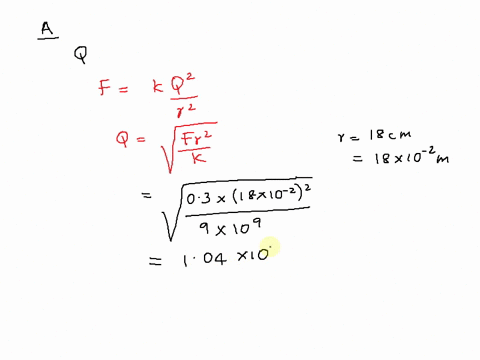 A
Q
F = k Q²/r²
Q = √(Fr²/k)
r = 18 cm
= 18 × 10⁻² m
= √(0.3 × (18×10⁻²)²/9 × 10⁹)
= 1.04 × 10